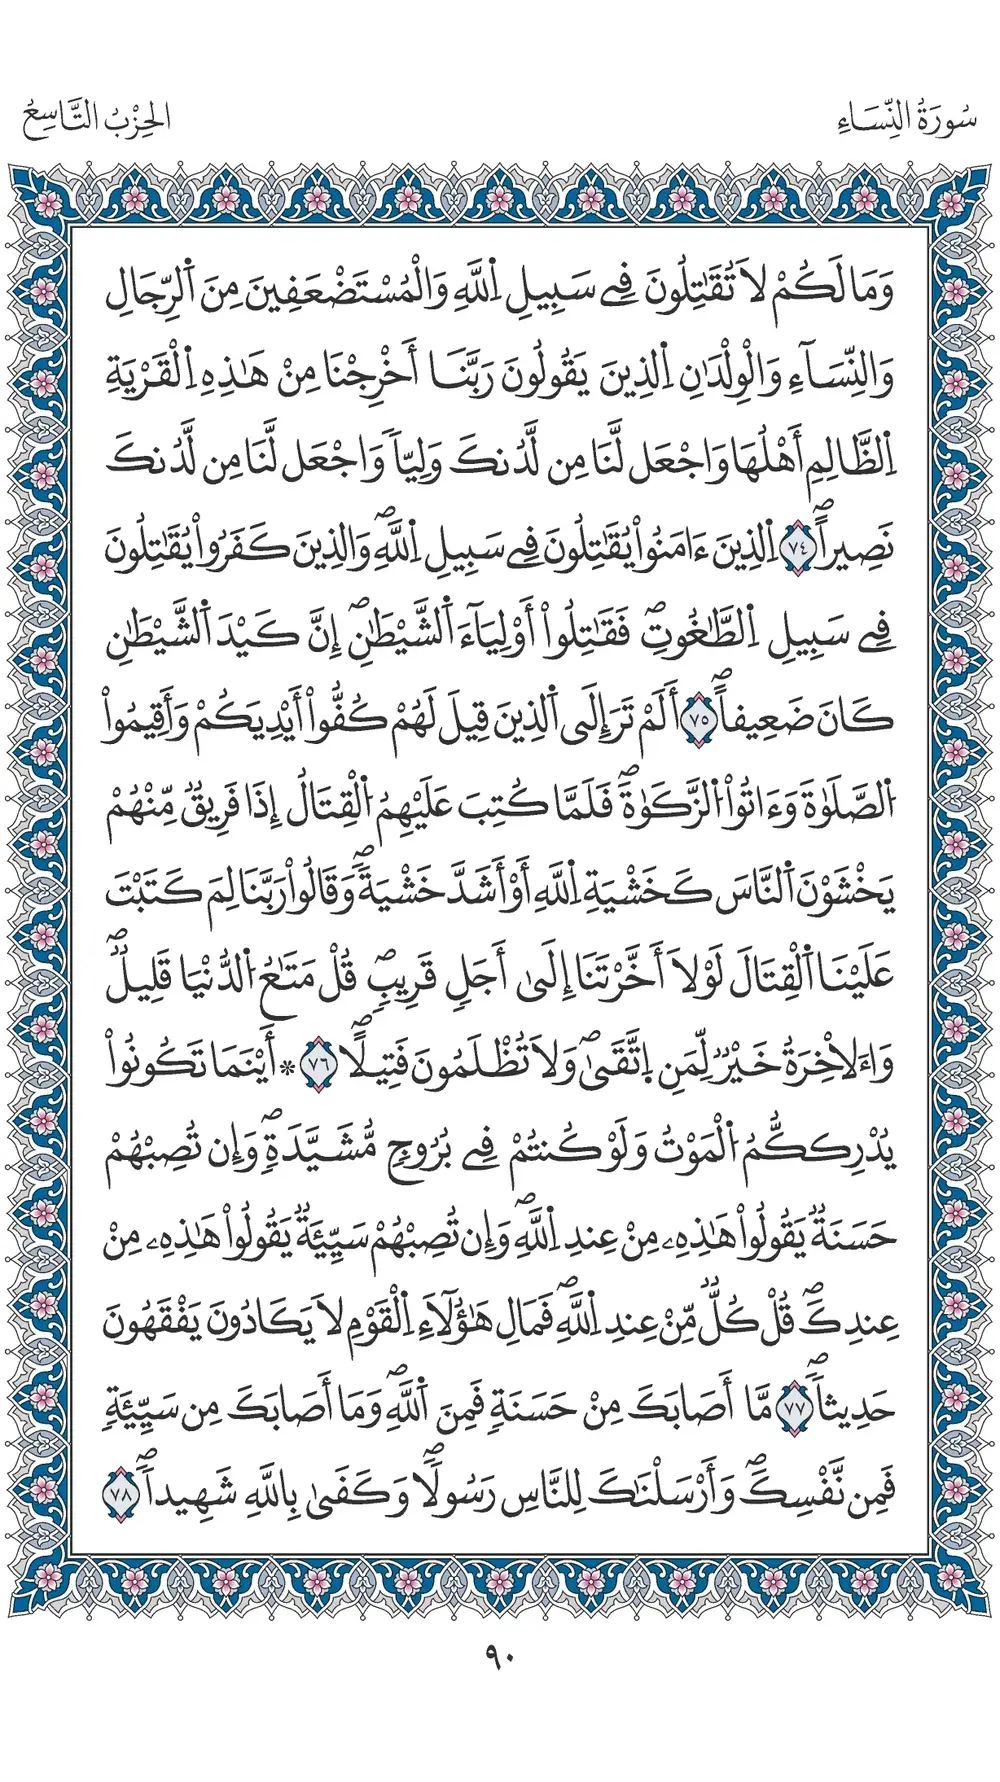 سُورَةُ النِّسَاءِ
الحِزْبُ التَّاسِعُ
وَمَا لَكُمْ لَا تُقَٰتِلُونَ فِے سَبِيلِ اِ۬للَّهِ وَالْمُسْتَضْعَفِينَ مِنَ اَ۬لرِّجَالِ
وَالنِّسَآءِ وَالْوِلْدَٰنِ اِ۬لذِينَ يَقُولُونَ رَبَّنَآ أَخْرِجْنَا مِنْ هَٰذِهِ اِ۬لْقَرْيَةِ
اِ۬لظَّالِمِ أَهْلُهَا وَاجْعَل لَّنَا مِن لَّدُنكَ وَلِيّاٗ وَاجْعَل لَّنَا مِن لَّدُنكَ
نَصِيراًۖ ٧٤ اِ۬لذِينَ ءَامَنُواْ يُقَٰتِلُونَ فِے سَبِيلِ اِ۬للَّهِۖ وَالذِينَ كَفَرُواْ يُقَٰتِلُونَ
فِے سَبِيلِ اِ۬لطَّٰغُوتِۖ فَقَٰتِلُوٓاْ أَوْلِيَآءَ اَ۬لشَّيْطَٰنِۖ إِنَّ كَيْدَ اَ۬لشَّيْطَٰنِ
كَانَ ضَعِيفاًۖ ٧٥ أَلَمْ تَرَ إِلَى اَ۬لذِينَ قِيلَ لَهُمْ كُفُّوٓاْ أَيْدِيَكُمْ وَأَقِيمُواْ
اُ۬لصَّلَوٰةَ وَءَاتُواْ اُ۬لزَّكَوٰةَۖ فَلَمَّا كُتِبَ عَلَيْهِمُ اُ۬لْقِتَالُ إِذَا فَرِيقٞ مِّنْهُمْ
يَخْشَوْنَ اَ۬لنَّاسَ كَخَشْيَةِ اِ۬للَّهِ أَوْ أَشَدَّ خَشْيَةٗۖ وَقَالُواْ رَبَّنَا لِمَ كَتَبْتَ
عَلَيْنَا اَ۬لْقِتَالَ لَوْلَآ أَخَّرْتَنَآ إِلَىٰٓ أَجَلٖ قَرِيبٖۖ قُلْ مَتَٰعُ اُ۬لدُّنْيَا قَلِيلٞۖ
وَالَاخِرَةُ خَيْرٞ لِّمَنِ اِ۪تَّقَىٰۖ وَلَا تُظْلَمُونَ فَتِيلاًۖ ٧٦ ۞ أَيْنَمَا تَكُونُواْ
يُدْرِككُّمُ اُ۬لْمَوْتُ وَلَوْ كُنتُمْ فِے بُرُوجٖ مُّشَيَّدَةٖۖ وَإِن تُصِبْهُمْ
حَسَنَةٞ يَقُولُواْ هَٰذِهِۦ مِنْ عِندِ اِ۬للَّهِۖ وَإِن تُصِبْهُمْ سَيِّئَةٞ يَقُولُواْ هَٰذِهِۦ مِنْ
عِندِكَۖ قُلْ كُلّٞ مِّنْ عِندِ اِ۬للَّهِۖ فَمَالِ هَٰٓؤُلَآءِ اِ۬لْقَوْمِ لَا يَكَادُونَ يَفْقَهُونَ
حَدِيثاٗۖ ٧٧ مَّآ أَصَابَكَ مِنْ حَسَنَةٖ فَمِنَ اَ۬للَّهِۖ وَمَآ أَصَابَكَ مِن سَيِّئَةٖ
فَمِن نَّفْسِكَۖ وَأَرْسَلْنَٰكَ لِلنَّاسِ رَسُولاٗۖ وَكَفَىٰ بِاللَّهِ شَهِيداٗۖ ٧٨
٩٠